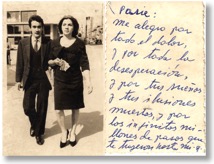 Parie:
me alegro por
todo el dolor,
y por toda la
desesperación,
y por tus sueños
y tus ilusiones
muertas, y por
los infinitos mi-
llones de pasos que
te trajeron hasta mi.